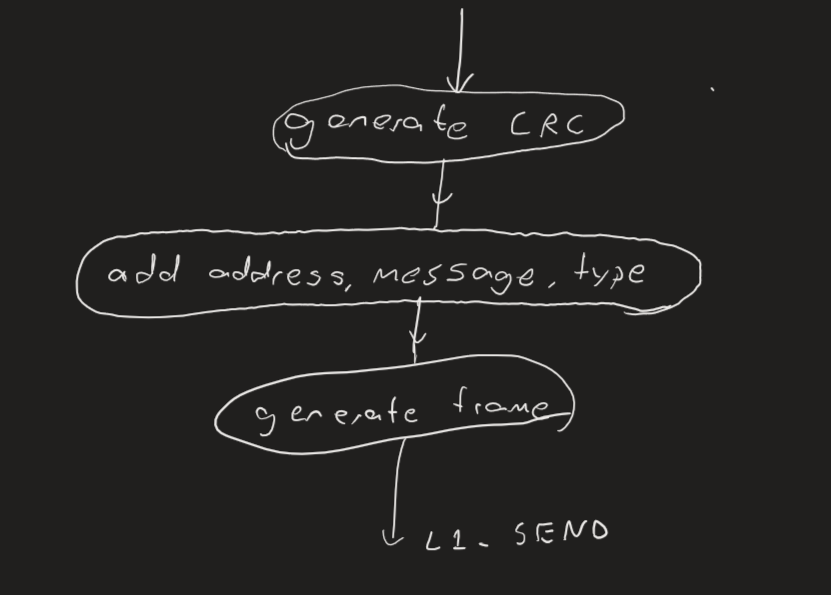 generate CRC
add address, message, type
generate frame
L1_SEND